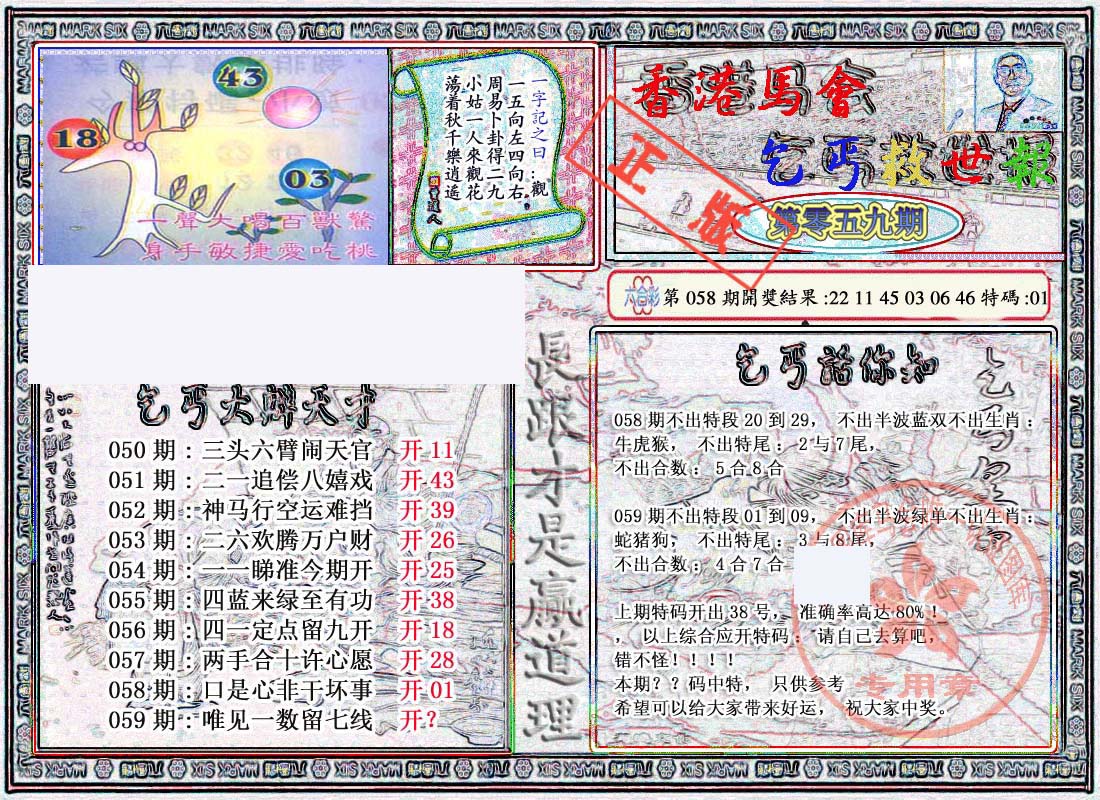 43
18
03
一聲大喝百獸驚
身手敏捷愛吃桃
一字記之曰:觀
一五向左四向右
周易卜卦得二九
小姑一人來觀花
蕩着秋千樂逍遥
香港馬會
乞丐救世報
第零五九期
正版
六合彩 第 058 期開獎結果 :22 11 45 03 06 46 特碼 :01
乞丐話你知
058 期不出特段 20 到 29， 不出半波蓝双不出生肖：
牛虎猴， 不出特尾： 2 与 7 尾，
不出合数： 5 合 8 合
059 期不出特段 01 到 09， 不出半波绿单不出生肖：
蛇猪狗， 不出特尾： 3 与 8 尾，
不出合数： 4 合 7 合
上期特码开出 38 号， 准确率高达 80%！
， 以上综合应开特码： 请自己去算吧，
错不怪！！！！
本期？？码中特， 只供参考
希望可以给大家带来好运， 祝大家中奖。
专用章
長跟才是贏道理
050 期：三头六臂闹天官 开 11
051 期：二一追偿八嬉戏 开 43
052 期：神马行空运难挡 开 39
053 期：二六欢腾万户财 开 26
054 期：一一睇准今期开 开 25
055 期：四蓝来绿至有功 开 38
056 期：四一定点留九开 开 18
057 期：两手合十许心愿 开 28
058 期：口是心非干坏事 开 01
059 期：唯见一数留七线 开？
MARK SIX